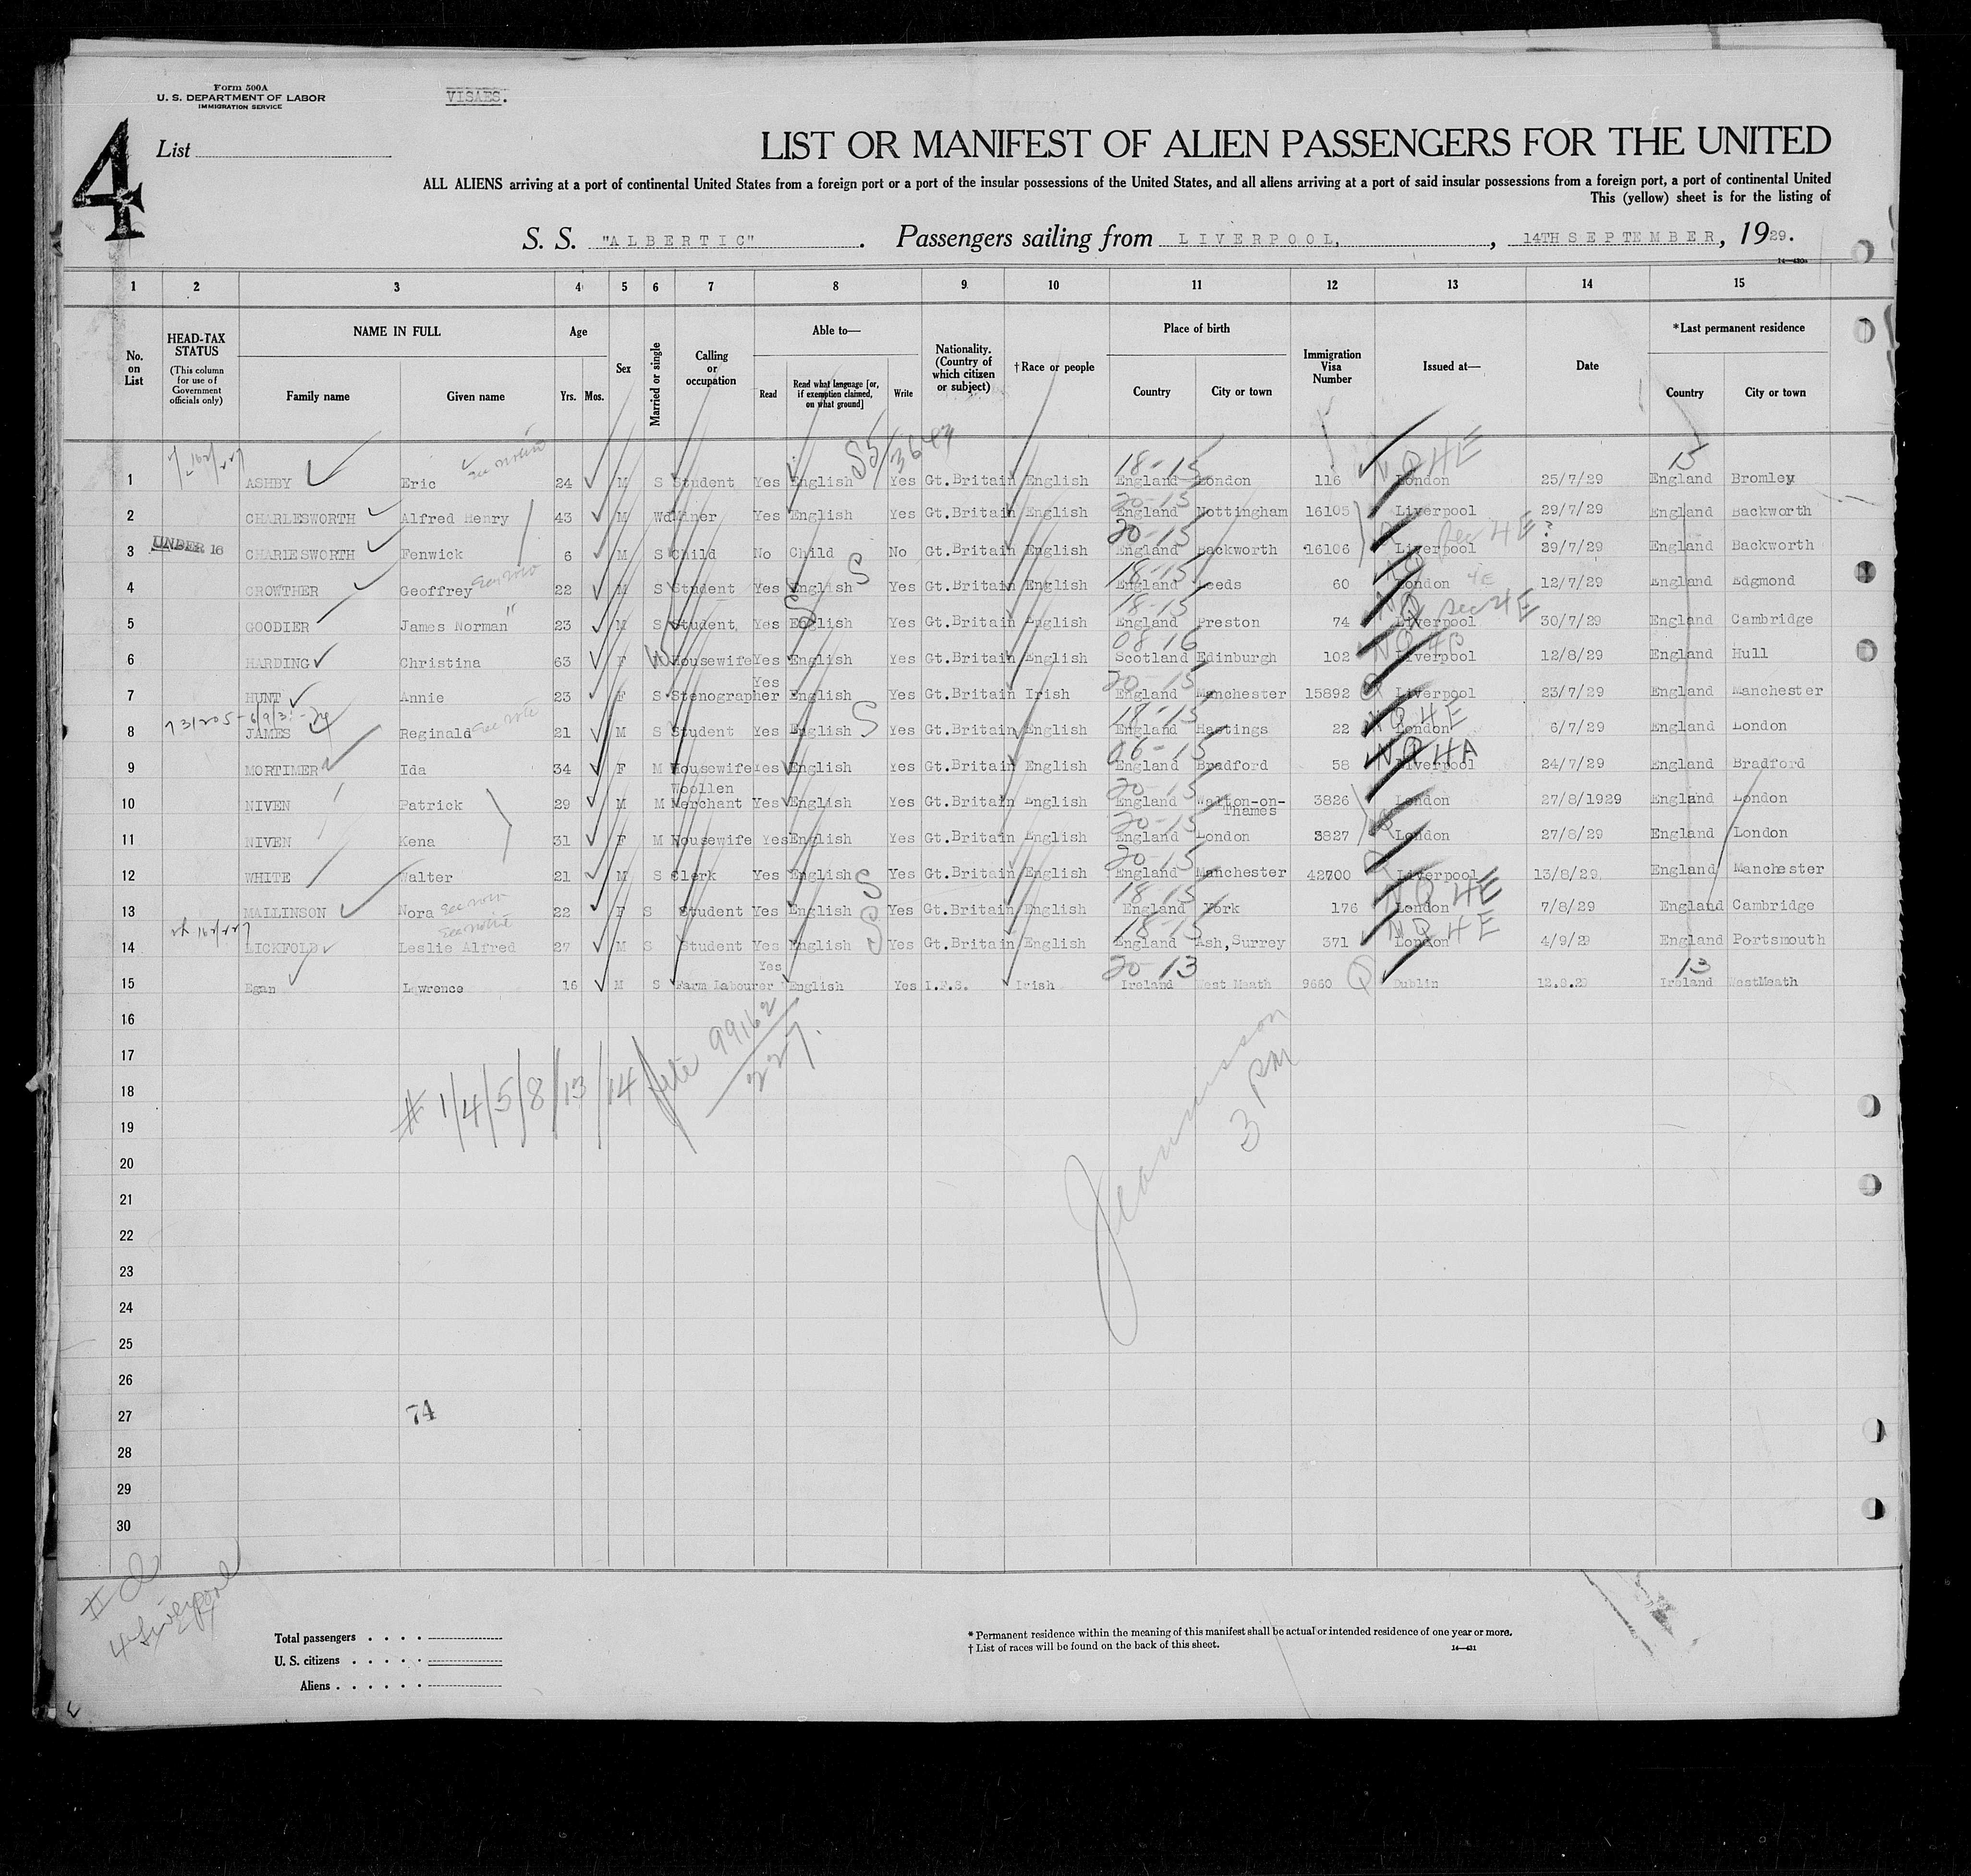 Form 500A
U. S. DEPARTMENT OF LABOR
IMMIGRATION SERVICE
VISAES.
4
List
LIST OR MANIFEST OF ALIEN PASSENGERS FOR THE UNITED
ALL ALIENS arriving at a port of continental United States from a foreign port or a port of the insular possessions of the United States, and all aliens arriving at a port of said insular possessions from a foreign port, a port of continental United
This (yellow) sheet is for the listing of
S. S. "ALBERTIC". Passengers sailing from LIVERPOOL, , 14TH SEPTEMBER, 1929.
1 2 3 4 5 6 7 8 9 10 11 12 13 14 15
No. on List
HEAD-TAX STATUS
(This column for use of Government officials only)
NAME IN FULL
Family name Given name
Age
Yrs. Mos.
Sex
Married or single
Calling or occupation
Able to—
Read
Read what language [or, if exemption claimed, on what ground]
Write
Nationality. (Country of which citizen or subject)
†Race or people
Place of birth
Country City or town
Immigration Visa Number
Issued at—
Date
*Last permanent residence
Country City or town
18-15 NQ4E 15
1 ASHBY Eric 24 M S Student Yes English Yes Gt.Britain English England London 116 London 25/7/29 England Bromley
20-15
2 CHARLESWORTH Alfred Henry 43 M Wd Miner Yes English Yes Gt.Britain English England Nottingham 16105 Liverpool 29/7/29 England Backworth
UNDER 16 20-15
3 CHARLESWORTH Fenwick 6 M S Child No Child No Gt.Britain English England Backworth 16106 Liverpool 29/7/29 England Backworth
18-15
4 CROWTHER Geoffrey 22 M S Student Yes English S Yes Gt.Britain English England Leeds 60 London 4E 12/7/29 England Edgmond
18-15
5 GOODIER James Norman 23 M S Student, Yes English Yes Gt.Britain English England Preston 74 Liverpool 30/7/29 England Cambridge
08-16
6 HARDING Christina 63 F W Housewife Yes English Yes Gt.Britain English Scotland Edinburgh 102 Liverpool 12/8/29 England Hull
Yes 20-15
7 HUNT Annie 23 F S Stenographer English Yes Gt.Britain Irish England Manchester 15892 Liverpool 23/7/29 England Manchester
18-15 NQ4E
8 JAMES Reginald 21 M S Student Yes English S Yes Gt.Britain English England Hastings 22 London 6/7/29 England London
06-15 NQ4A
9 MORTIMER Ida 34 F M Housewife Yes English Yes Gt.Britain English England Bradford 58 Liverpool 24/7/29 England Bradford
Woollen 20-15
10 NIVEN Patrick 29 M M Merchant Yes English Yes Gt.Britain English England Walton-on-Thames 3826 London 27/8/1929 England London
20-15
11 NIVEN Kena 31 F M Housewife Yes English Yes Gt.Britain English England London 3827 London 27/8/29 England London
20-15
12 WHITE Walter 21 M S Clerk Yes English Yes Gt.Britain English England Manchester 42700 Liverpool 13/8/29. England Manchester
18-15 NQ4E
13 MALLINSON Nora 22 F S Student Yes English S Yes Gt.Britain English England York 176 London 7/8/29 England Cambridge
18-15 NQ4E
14 LICKFOLD Leslie Alfred 27 M S Student Yes English S Yes Gt.Britain English England Ash, Surrey 371 London 4/9/29 England Portsmouth
Yes 20-13 13
15 Egan Lawrence 16 M S Farm Labourer English Yes I.F.S. Irish Ireland West Meath 9660 Q Dublin 12.8.29 Ireland WestMeath
16
17
18
# 1/4/5/8/13/14 file 99162/227.
3 PM
19
20
21
22
23
24
25
26
27
74
28
29
30
4 Liverpool
Total passengers
U. S. citizens
Aliens
* Permanent residence within the meaning of this manifest shall be actual or intended residence of one year or more.
† List of races will be found on the back of this sheet.
14—431